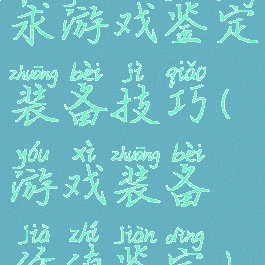 求游戏鉴定
zhuāng bèi jì qiǎo
装备技巧(
yóu xì zhuāng bèi
游戏装备
jià zhí jiàn dìng
价值鉴定)